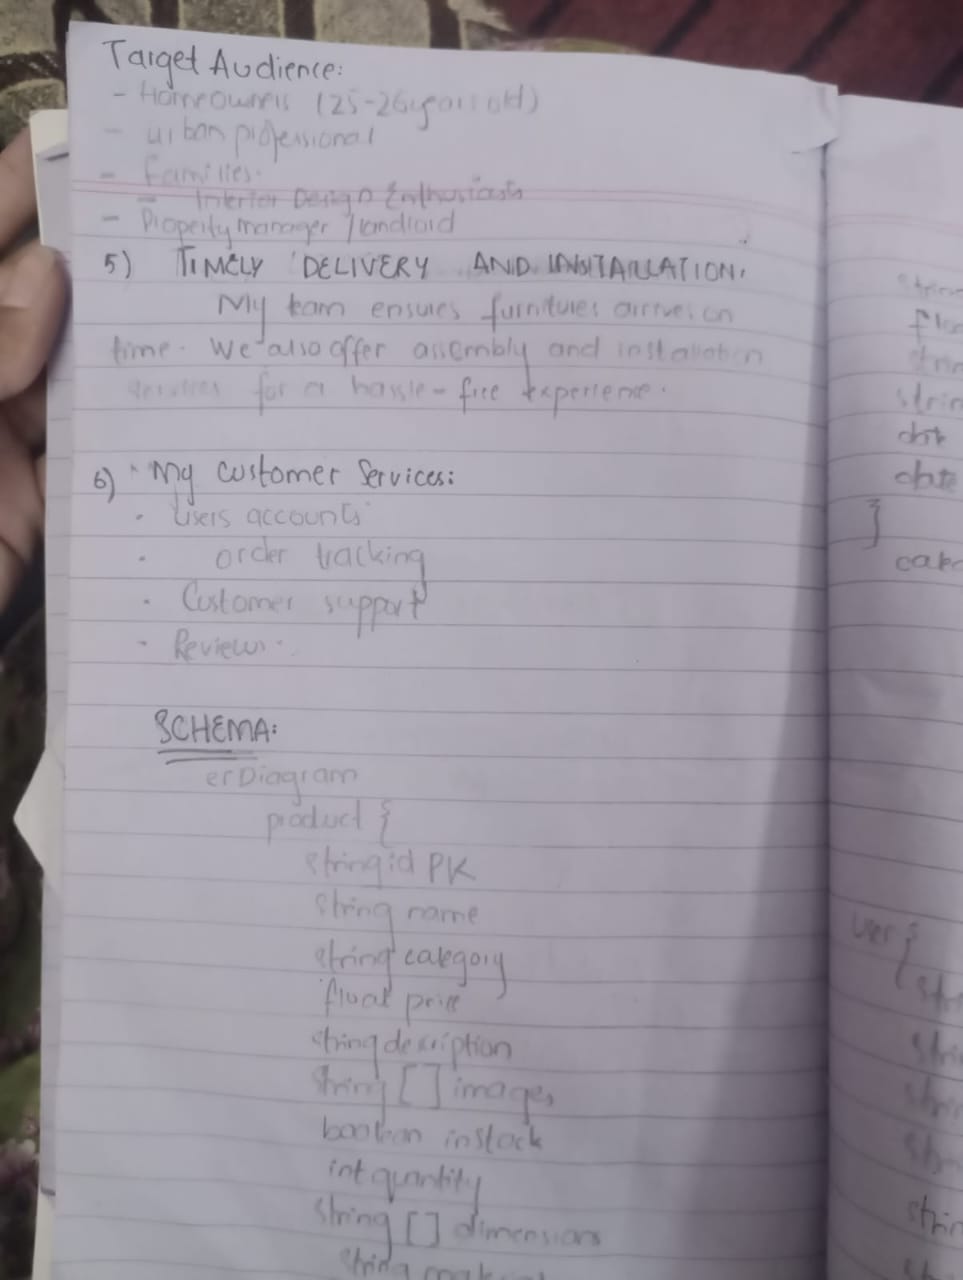 Target Audience:
- Homeowners (25-26 years old)
- urban professional
- Families.
- Interior Design Enthusiasts
- Property manager / landloid
5) TIMELY DELIVERY AND INSTALLATION.
My team ensures furnitures arrives on
time. We also offer assembly and installation
services for a hassle-free experience.
6) My customer Services:
· Users accounts
· order tracking
· Customer support
· Reviews.
SCHEMA:
erDiagram
product {
string id PK
string name
string category
float price
string description
string [] images
boolean instock
int quantity
string [] dimensions
string
date
date
}
user {